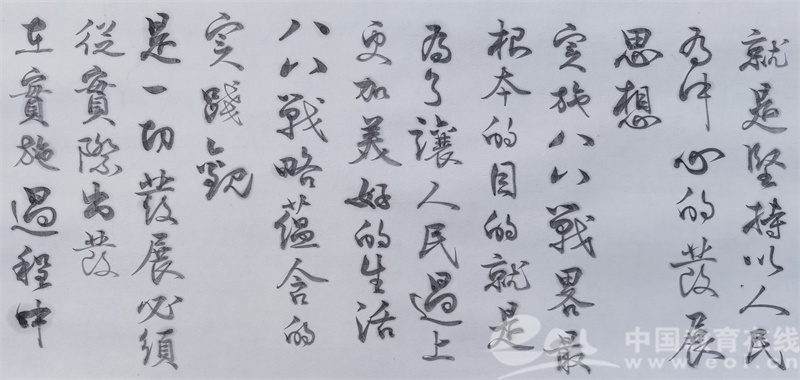 就是坚持以人民
為中心的發展
思想
实施八八戰畧最
根本的目的就是
為了讓人民過上
更加美好的生活
八八戰略蕴含的
实踐觀
是一切發展必須
從實際出發
在實施過程中
中国教育在线
www.eol.cn